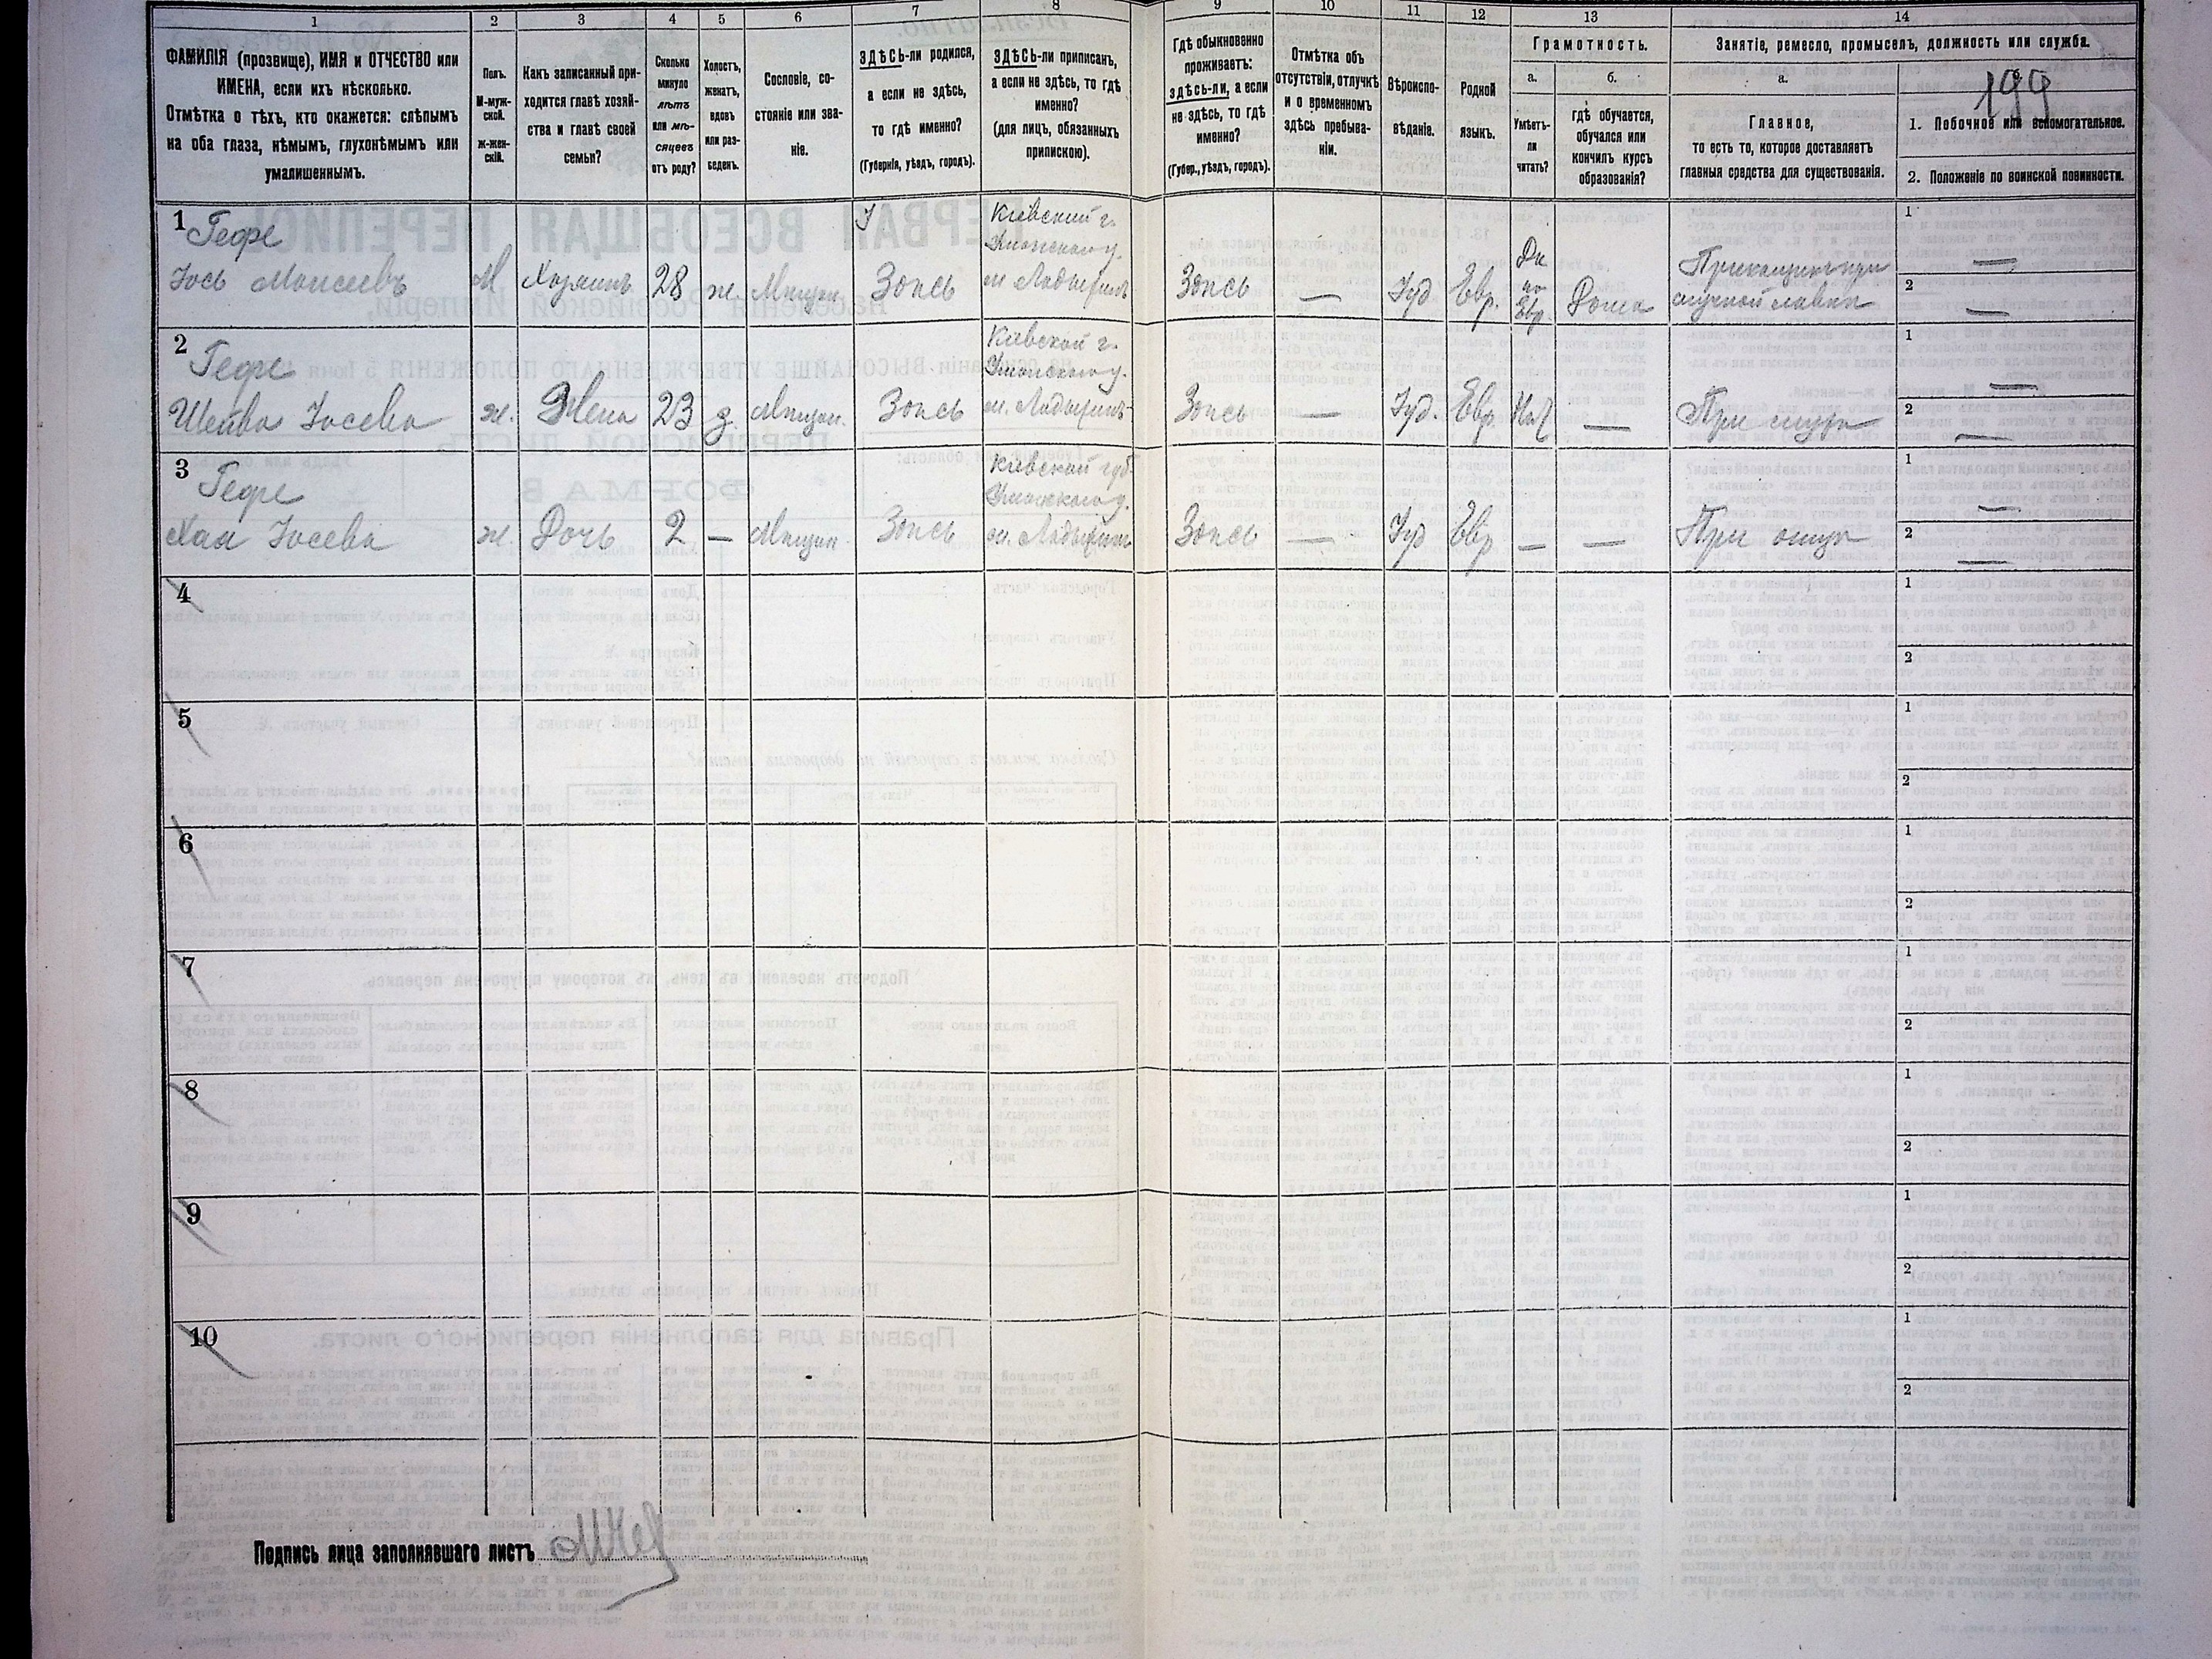 1 2 3 4 5 6 7 8 9 10 11 12 13 14
ФАМИЛІЯ (прозвище), ИМЯ и ОТЧЕСТВО или
ИМЕНА, если ихъ нѣсколько.
Отмѣтка о тѣхъ, кто окажется: слѣпымъ
на оба глаза, нѣмымъ, глухонѣмымъ или
умалишеннымъ.
Полъ.
М-муж-
ской.
ж-жен-
скій.
Какъ записанный при-
ходится главѣ хозяй-
ства и главѣ своей
семьи?
Сколько
минуло
лѣтъ
или мѣ-
сяцевъ
отъ роду?
Холостъ,
женатъ,
вдовъ
или раз-
веденъ.
Сословіе, со-
стояніе или зва-
ніе.
ЗДѢСЬ-ли родился,
а если не здѣсь,
то гдѣ именно?
(Губернія, уѣздъ, городъ).
ЗДѢСЬ-ли приписан,
а если не здѣсь, то гдѣ
именно?
(для лицъ, обязанныхъ
припискою).
Гдѣ обыкновенно
проживаетъ:
здѣсь-ли, а если
не здѣсь, то гдѣ
именно?
(Губер., уѣздъ, городъ).
Отмѣтка объ
отсутствіи, отлучкѣ
и о временномъ
здѣсь пребыва-
ніи.
Вѣроиспо-
вѣданіе.
Родной
языкъ.
Грамотность.
а.
Умѣетъ-
ли
читать?
б.
гдѣ обучается,
обучался или
кончилъ курсъ
образованія?
Занятіе, ремесло, промыселъ, должность или служба.
а.
Главное,
то есть то, которое доставляетъ
главныя средства для существованія.
199
1. Побочное или вспомогательное.
2. Положеніе по воинской повинности.
1 Гефе
Іось Моисеевъ
М Хозяинъ 28 ж. Мѣщан. Здѣсь
Кіевскій г.
Уманскаго у.
м Ладыжинъ
Здѣсь — Іуд Евр.
Да
по
Евр.
Дома
Прикащикъ при
мучной лавкѣ
1 —
2 —
2 Гефе
Шейва Іосева
ж. Жена 23 з. Мѣщан. Здѣсь
Кіевской г.
Уманскаго у.
м. Ладыжинъ
Здѣсь — Іуд. Евр. Нѣт —
При мужѣ
1 —
2 —
3 Гефе
Хая Іосева
ж. Дочь 2 — Мѣщан Здѣсь
Кіевской губ
Уманскаго у.
м. Ладыжинъ
Здѣсь — Іуд Евр — —
При отцѣ
1 —
2 —
4
1
2
5
1
2
6
1
2
7
1
2
8
1
2
9
1
2
10
1
2
Подпись лица заполнявшаго листъ